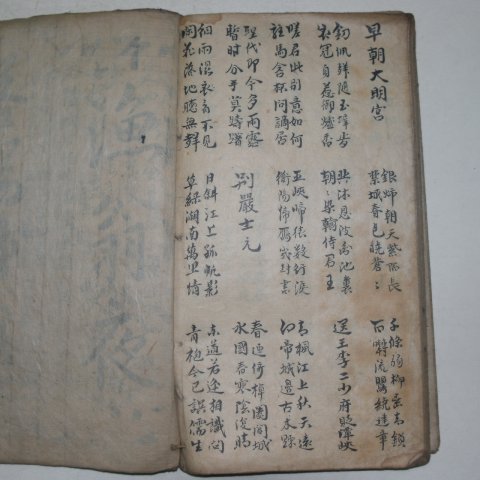 早朝大明宮
銀燭朝天紫陌長
禁城春色曉蒼〻
千條弱柳垂青鎖
百囀流鶯繞建章
釼佩聲隨玉墀步
衣冠身惹御爐香
共沐恩波鳳池裏
朝〻染翰侍君王
送王李二少府貶潭峽
嗟君此別意如何
駐馬含杯問謫居
巫峽啼猿數行淚
衡陽歸鴈幾封書
青楓江上秋天遠
白帝城邊古木疎
聖代即今多雨露
暫時分手莫躊躇
別嚴士元
春迎倚棹闔閭城
水國春寒陰復晴
細雨濕衣看不見
閑花落地聽無聲
日斜江上孤帆影
草綠湖南萬里情
東道若逢相識問
青袍今已誤儒生